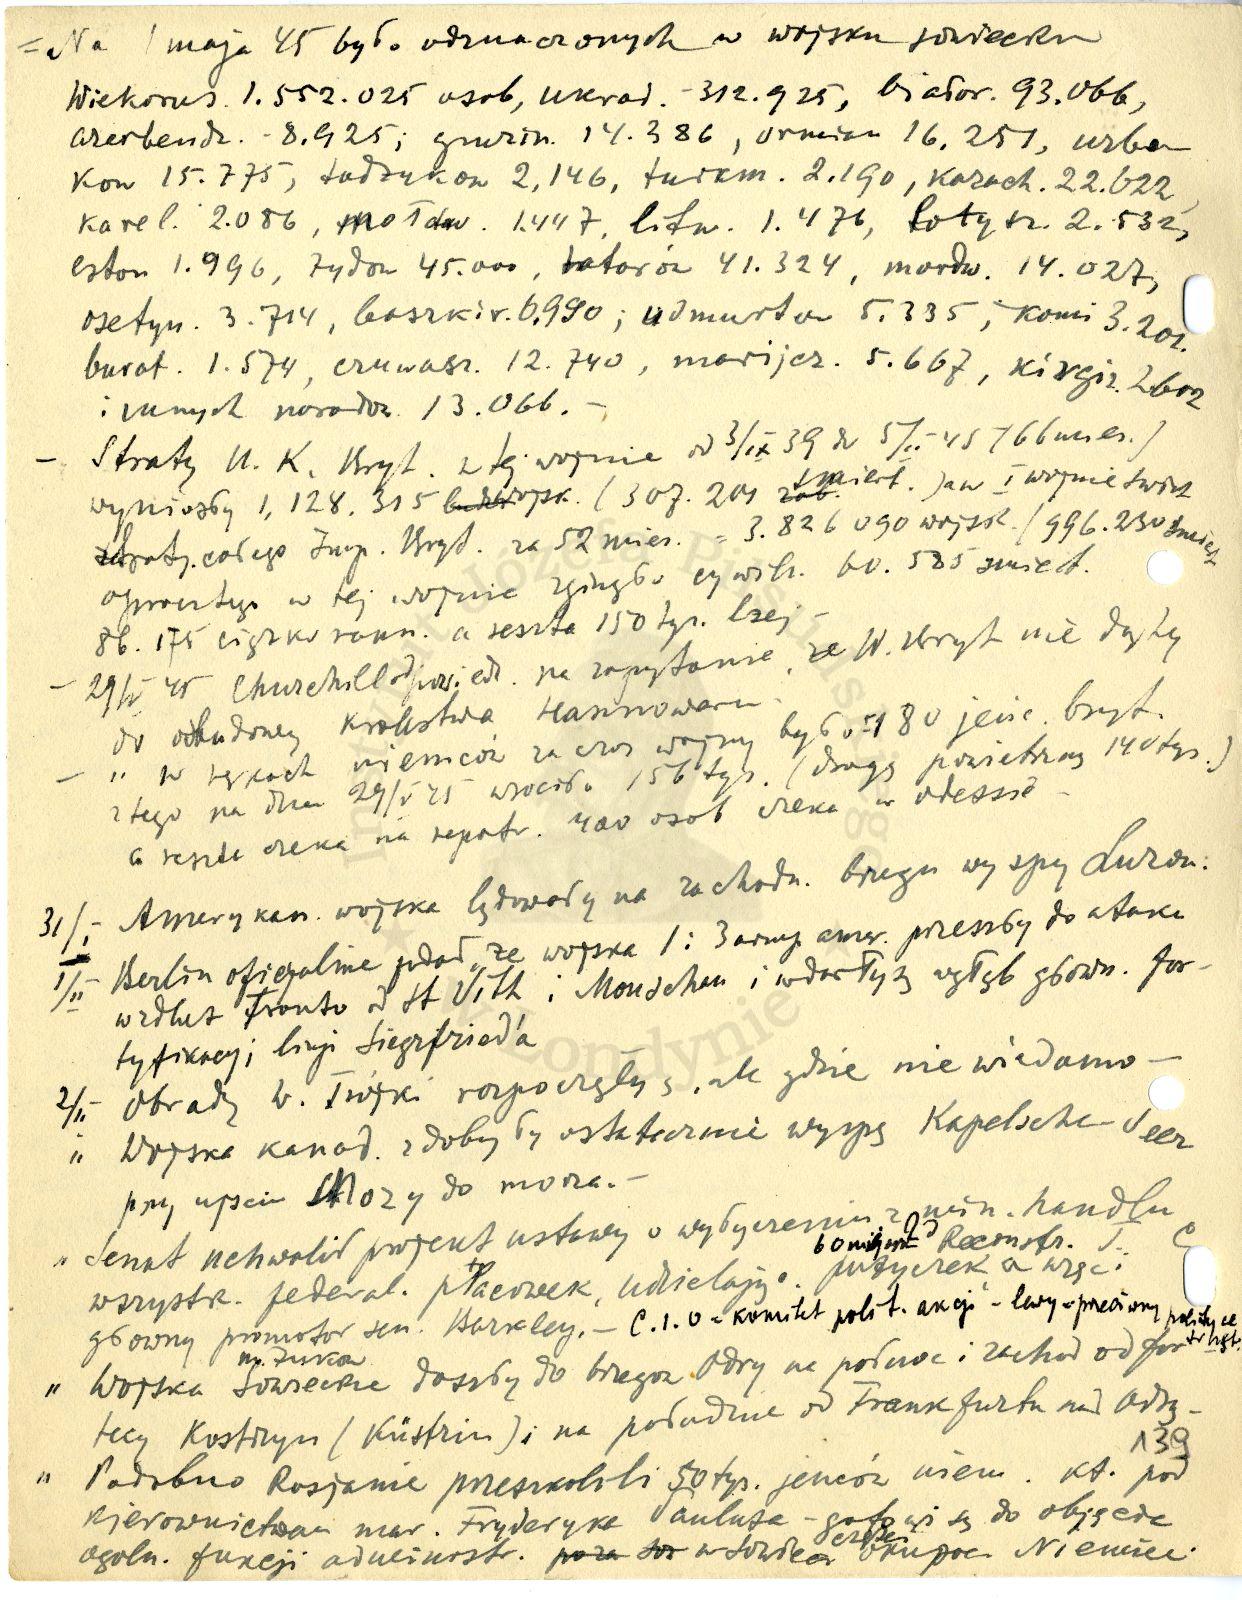 = Na 1 maja 45 było odznaczonych w wojsku sowieckim
Wiekorus. 1.552.025 osob, ukrad. - 312.925, białor. 93.066,
azerbendz. - 8.925; gruzin. 14.386, ormian 16.251, uzbe
kow 15.775, tadzykow 2,146, turkm. 2.190, kazach. 22.622,
karel. 2.086, mołdaw. 1.447, litw. 1.476, łotysz. 2.532,
eston 1.996, żydow 45.000, tatarów 41.324, mordw. 14.027,
osetyn. 3.714, baszkir. 6.990; udmurtow 5.335, komi 3.202.
burat. 1.574, czuwasz. 12.740, marijcz. 5.667, kirgiz. 2602
i innych narodow 13.066. -
- Straty W. K. Bryt. w tej wojnie od 3/IX 39 do 5/II 45 /66 mies.)
wyniosły 1,128.315 wojsk. (307.201 śmiert.) a w I wojnie świat
straty całego Imp. Bryt. za 52 mies. = 3.826 090 wojsk. (996.230 śmiert
oprocz tego w tej wojnie zginęło cywiln. 60.585 śmiert.
86.175 ciężko rann. a reszta 150 tys. lżej -
- 29/V 45 Churchill odpowied. na zapytanie, że W. Bryt nie dąży
do odbudowy krolestwa Hannoweru
- " w rękach niemcow za czas wojny było 180 jenc. bryt.
z tego na dzien 29/V 45 wrocilo 156 tys. (drogą powietrzną 140 tys.)
a reszta czeka na repatr. 400 osob czeka w Odessie -
31/I - Amerykan. wojska lądowały na zachodn. brzegu wyspy Luzon.
1/II Berlin oficjalnie podał, że wojska 1 i 3 armji amer. przeszły do ataku
wzdłuż frontu od St Vith i Monschau i wdarły się wgłąb głown. for-
tyfikacji linji Siegfried'a
2/II Obrady W. Trójki rozpoczęły się, ale gdzie nie wiadomo -
" Wojska kanad. zdobyły ostatecznie wyspę Kapelsche Veer
przy ujsciu Mozy do morza. -
" Senat uchwalił projekt ustawy o wyłączeniu z min. handlu
bo miljard Reconstr. F. C
wszystk. federal. placowek, udzielając. pożyczek, a więc i
głowny promotor sen. Barkley. - C.I.O - komitet polit. akcji - lewy - przeciwny polityce
m. Żukow
" Wojska Sowieckie doszły do brzegow Odry na połnoc i zachod od for
tecy Kostrzyn (Küstrin) i na południe od Frankfurtu nad Odrą -
139
" Podobno Rosjanie przeszkolili 50 tys. jencow niem. kt. pod
kierownictwem mar. Fryderyka Paulusa - gotowi są do objęcia
ogoln. funkcji administr. w sowiec części okupac. Niemiec.